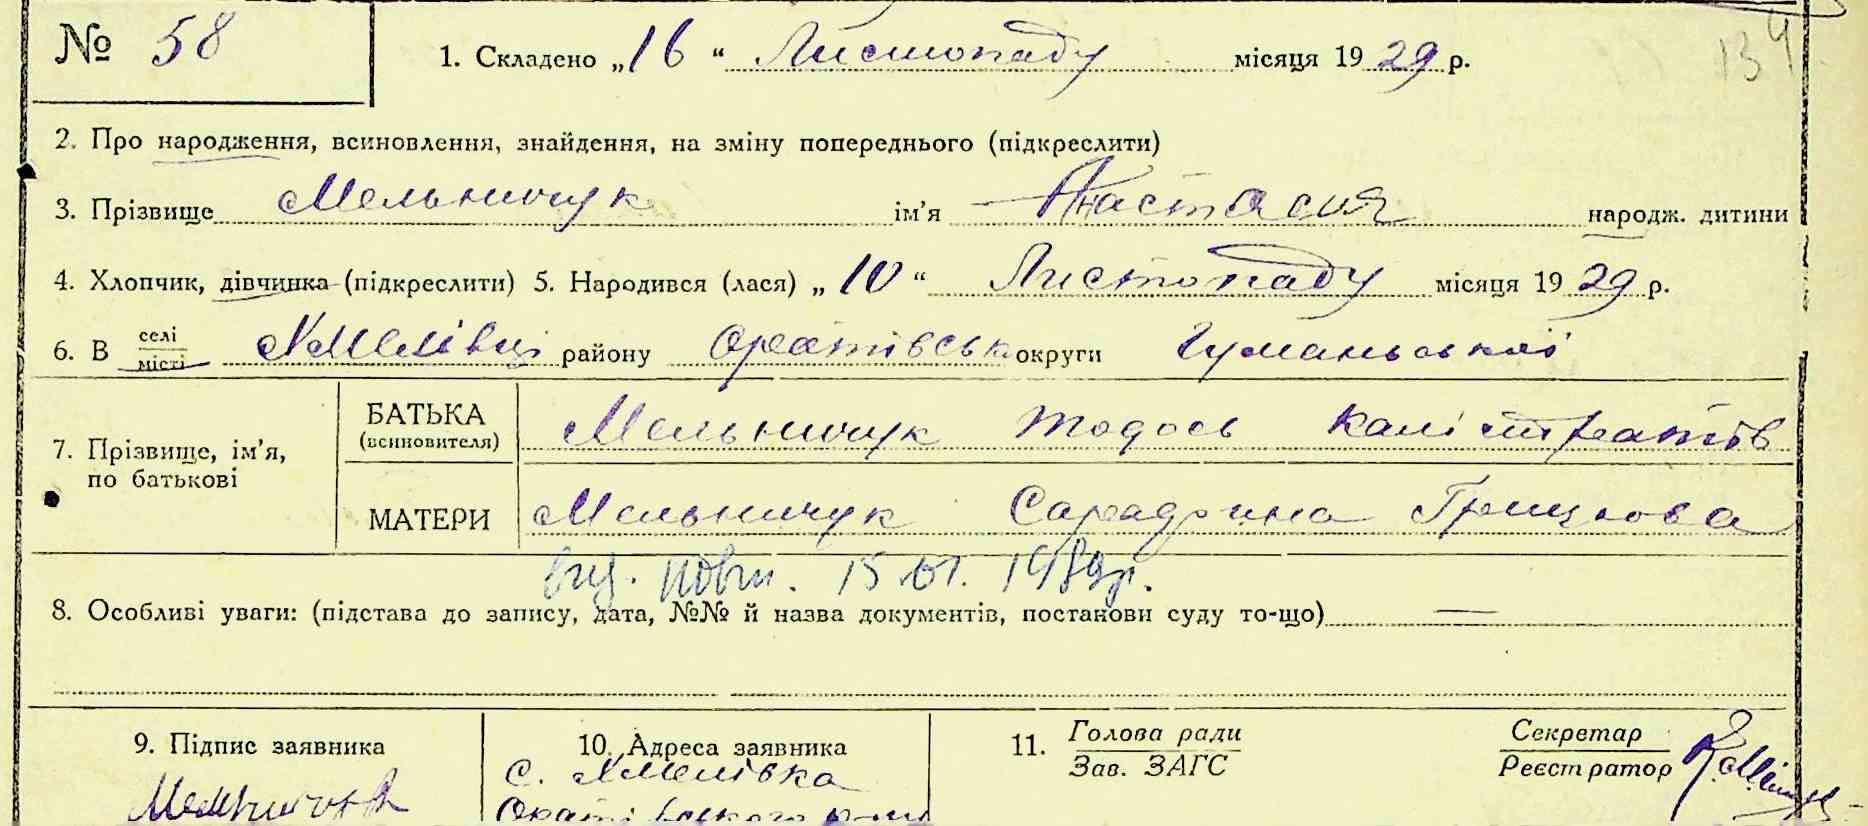 № 58
134
1. Складено „16“ Листопаду місяця 1929 р.
2. Про народження, всиновлення, знайдення, на зміну попереднього (підкреслити)
3. Прізвище Мельничук ім’я Анастасия народж. дитини
4. Хлопчик, дівчинка (підкреслити) 5. Народився (лася) „10“ Листопаду місяця 1929 р.
6. В селі місті Хмелівці району Оратівськ округи Гуманьської
7. Прізвище, ім’я, по батькові
БАТЬКА (всиновителя) Мельничук Тодось Калістратів
МАТЕРИ Мельничук Грицкова
вид. повт. 1989р.
8. Особливі уваги: (підстава до запису, дата, №№ й назва документів, постанови суду то-що) —
9. Підпис заявника
Мельничук
10. Адреса заявника
с. Хмелівка
Оратівського р-ну
11. Голова ради
Зав. ЗАГС
Секретар
Реєстратор